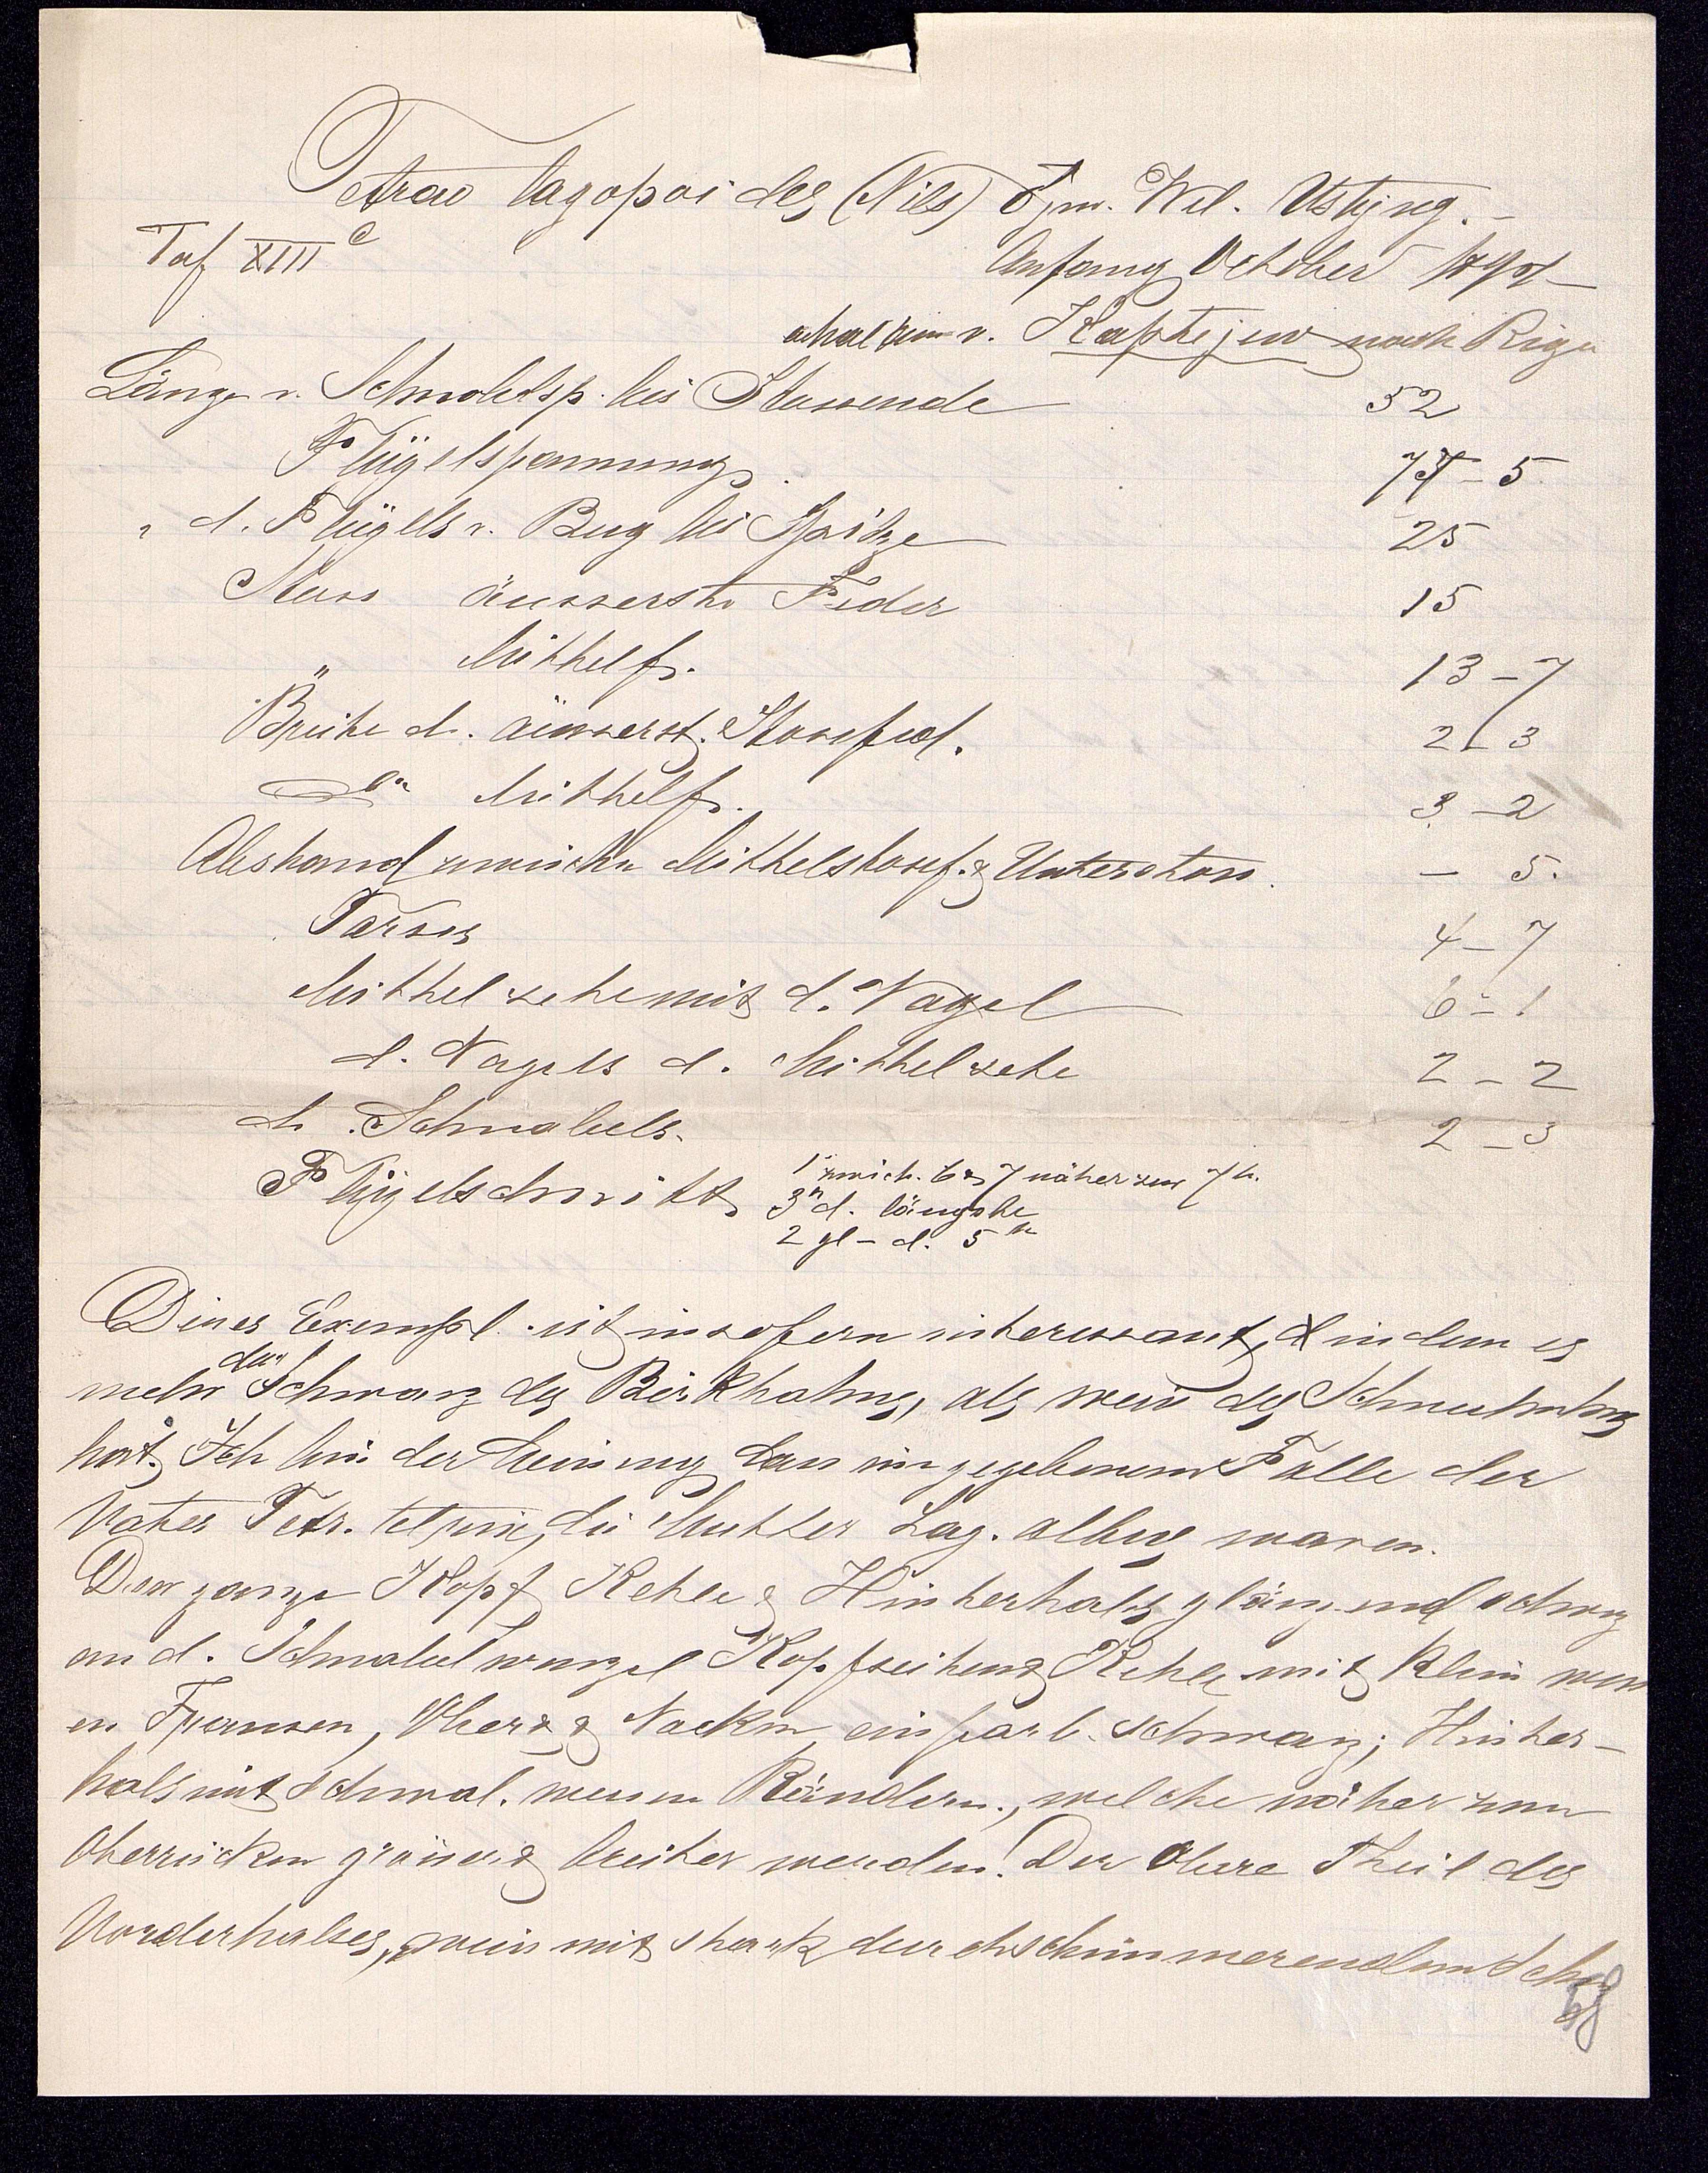 Tetrao lagopoides (Nils) ♂ jw. Wel. Ustjug. –
Taf XIII c
Anfang October
erhalten v. Haptejew nach Riga
Länge v. Schnabelsp. bis Stossende 52
Flügelspannung 77 – 5
" d. Flügels v. Bug bis Spitze 25
Stoss äusserste Feder 15
" Mittelf. 13 – 7
Breite d. äusserst. Stossfed. 2 – 3
do Mittelf. 3 – 2
Abstand zwischen Mittelstossf. & Unterstoss. – 5.
Tarsus 4 – 7
Mittelzehe mit d. Nagel 6 – 1
d. Nagels d. Mittelzehe 2 – 2
d. Schnabels. 2 – 3
Flügelschnitt 1e zwisch. 6 & 7 näher zur 7 n.
3n d. längste
2 gl – d. 5n
Dieses Exempl. ist insofern interessant, indem es
mehr den Schwanz des Birkhahns, als wie des Schneehuhns
hat. Ich bin der Meinung dass im gegebenem Falle der
Vater Tetr. tetrix, die Mutter Lag. albus waren.
Der ganze Kopf Kehle & Hinterhals glänzend schwrz
an d. Schnabelwurzel Kopfseiten & Kehle mit klein weiss
en Fransen, & Nacken einfarb. schwarz; Hinter-
hals mit schmal. weissen Rändern, welche näher zum
Oberrücken grösser & breiter werden! Der obere Theil des
Vorderhalses, weiss mit stark durchschimmerendem Schwz
58